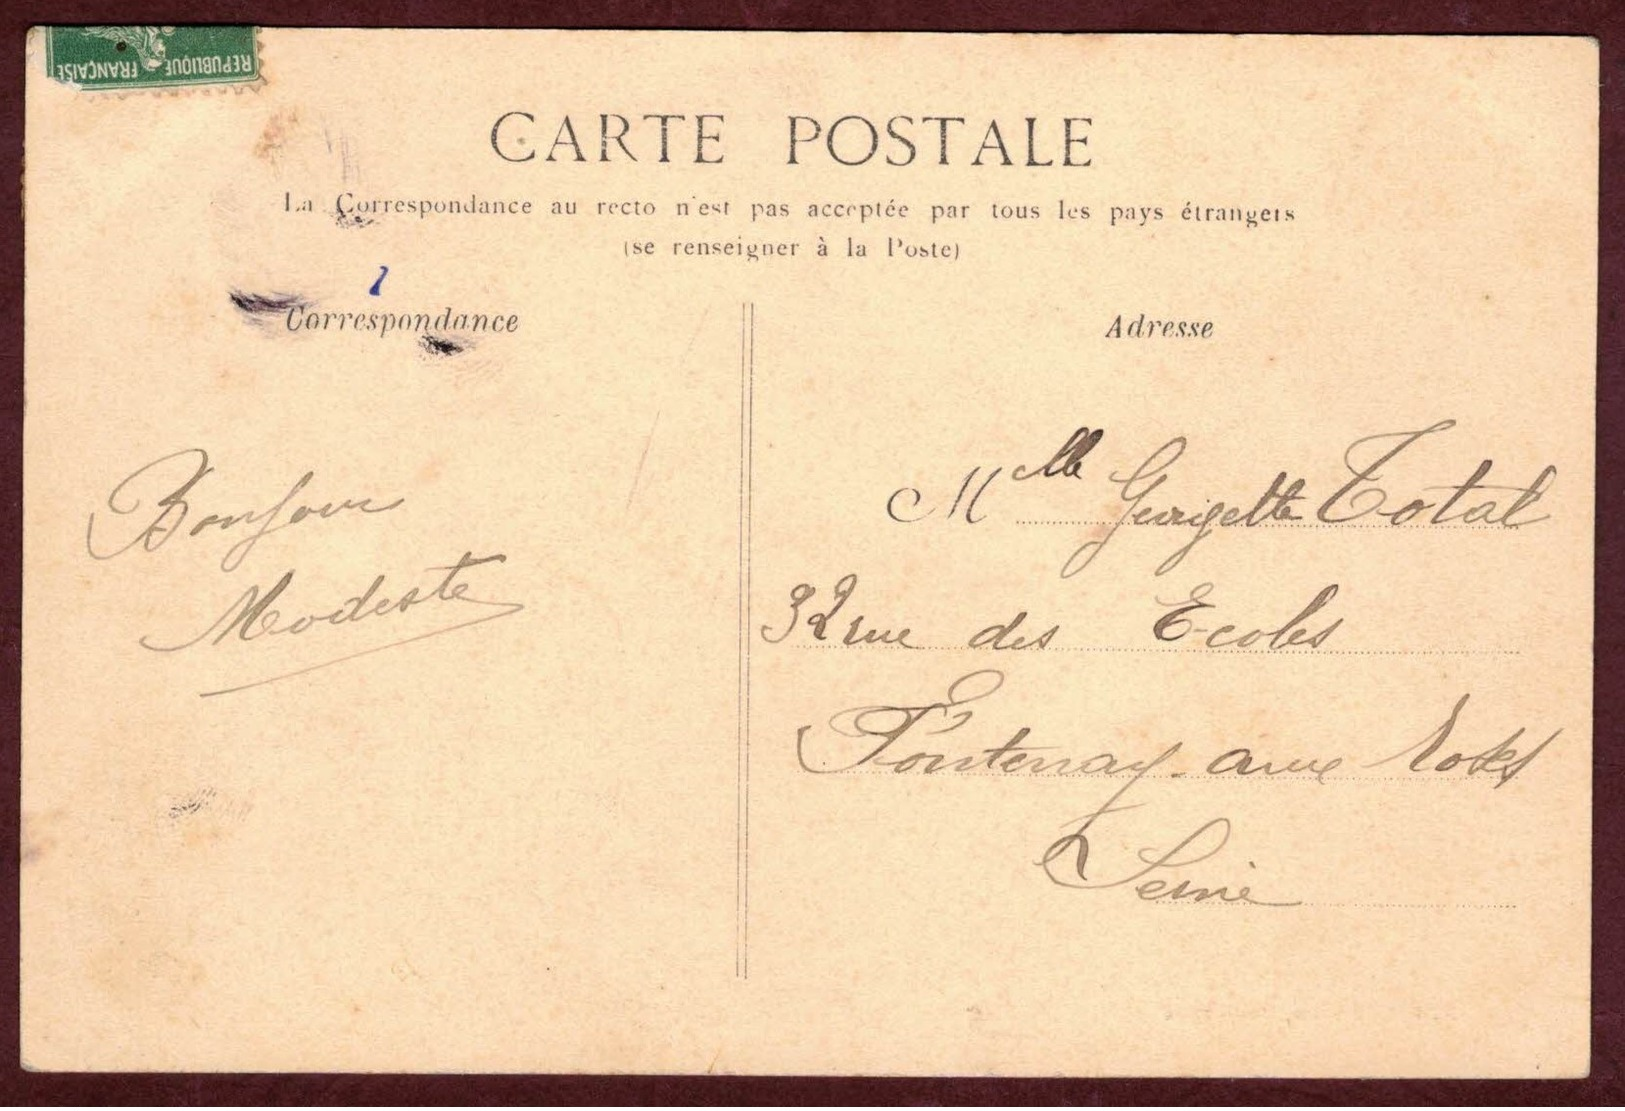 REPUBLIQUE FRANÇAISE
CARTE POSTALE
La Correspondance au recto n'est pas acceptée par tous les pays étrangers
(se renseigner à la Poste)
1
Correspondance
Bonjour
Modeste
Adresse
Mlle Georgette Total
32 rue des Ecoles
Fontenay-aux Roses
Seine